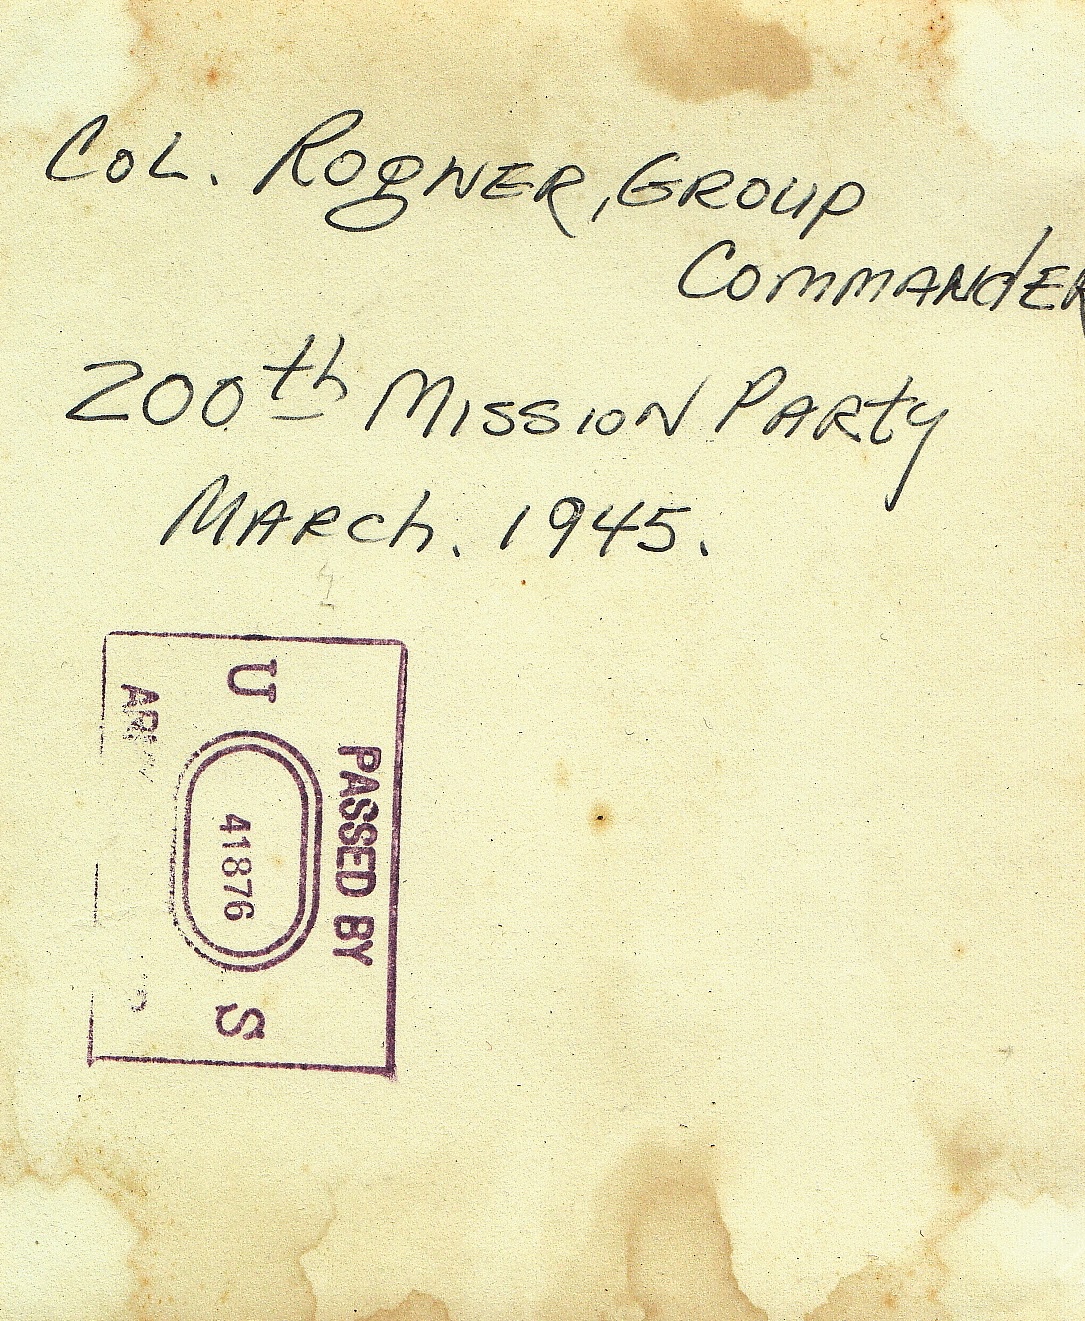 Col. Rogner, Group
Commander
200th Mission Party
March. 1945.
PASSED BY
U 41876 S